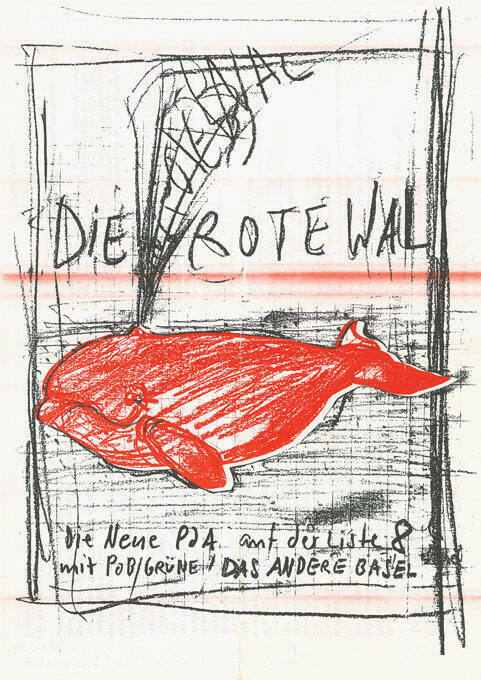 DIE ROTE WAL
Die Neue PDA auf der Liste 8
mit POB/GRÜNE / DAS ANDERE BASEL